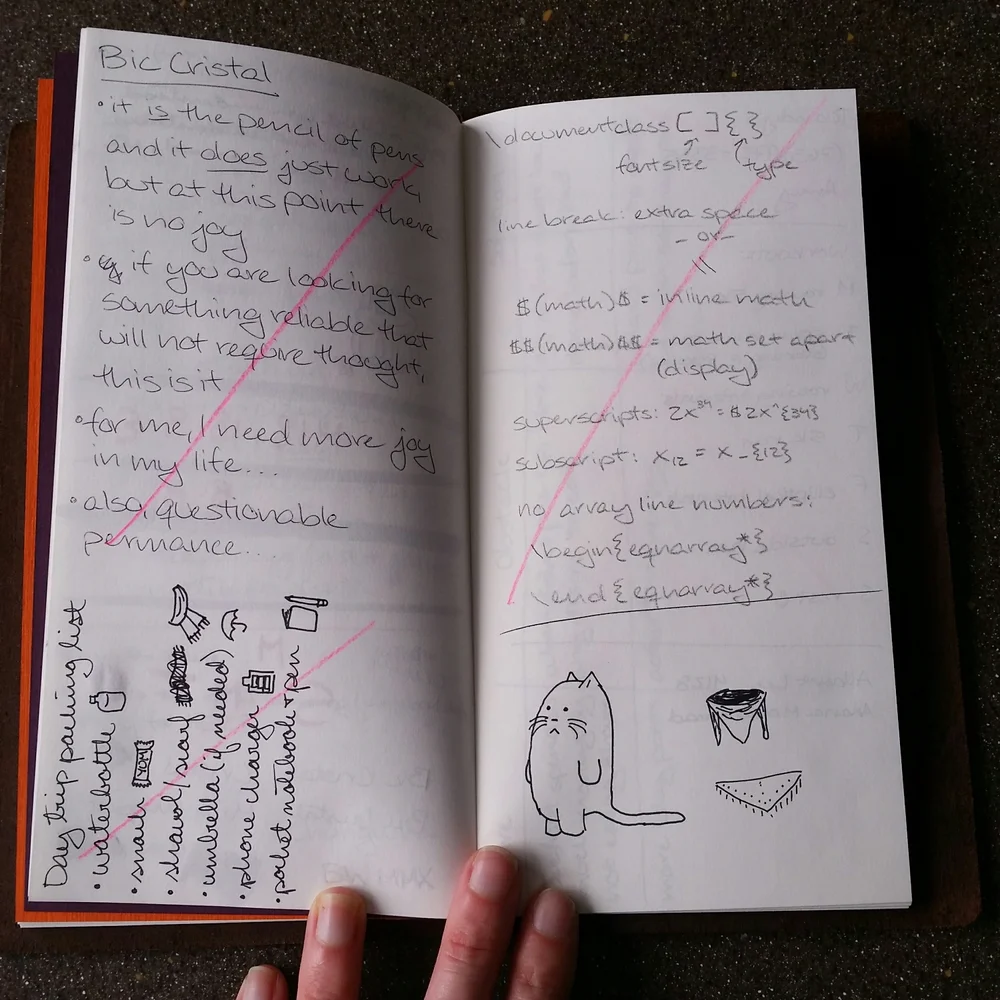 Bic Cristal
• it is the pencil of pens
and it does just work,
but at this point there
is no joy
• if you are looking for
something reliable that
will not require thought,
this is it
• for me, I need more joy
in my life...
• also, questionable
permance...
Day trip packing list
• waterbottle
• snack
YOM!
• shawl/scarf
• umbrella (if needed)
• phone charger
• pocket notebook + pen
\documentclass[ ]{ }
fontsize type
line break: extra space
- or -
\\
$(math)$ = inline math
$$(math)$$ = math set apart
(display)
superscripts: 2x³⁴ = $2x^{34}
subscript: x₁₂ = x_{12}
no array line numbers:
\begin{eqnarray*}
\end{eqnarray*}